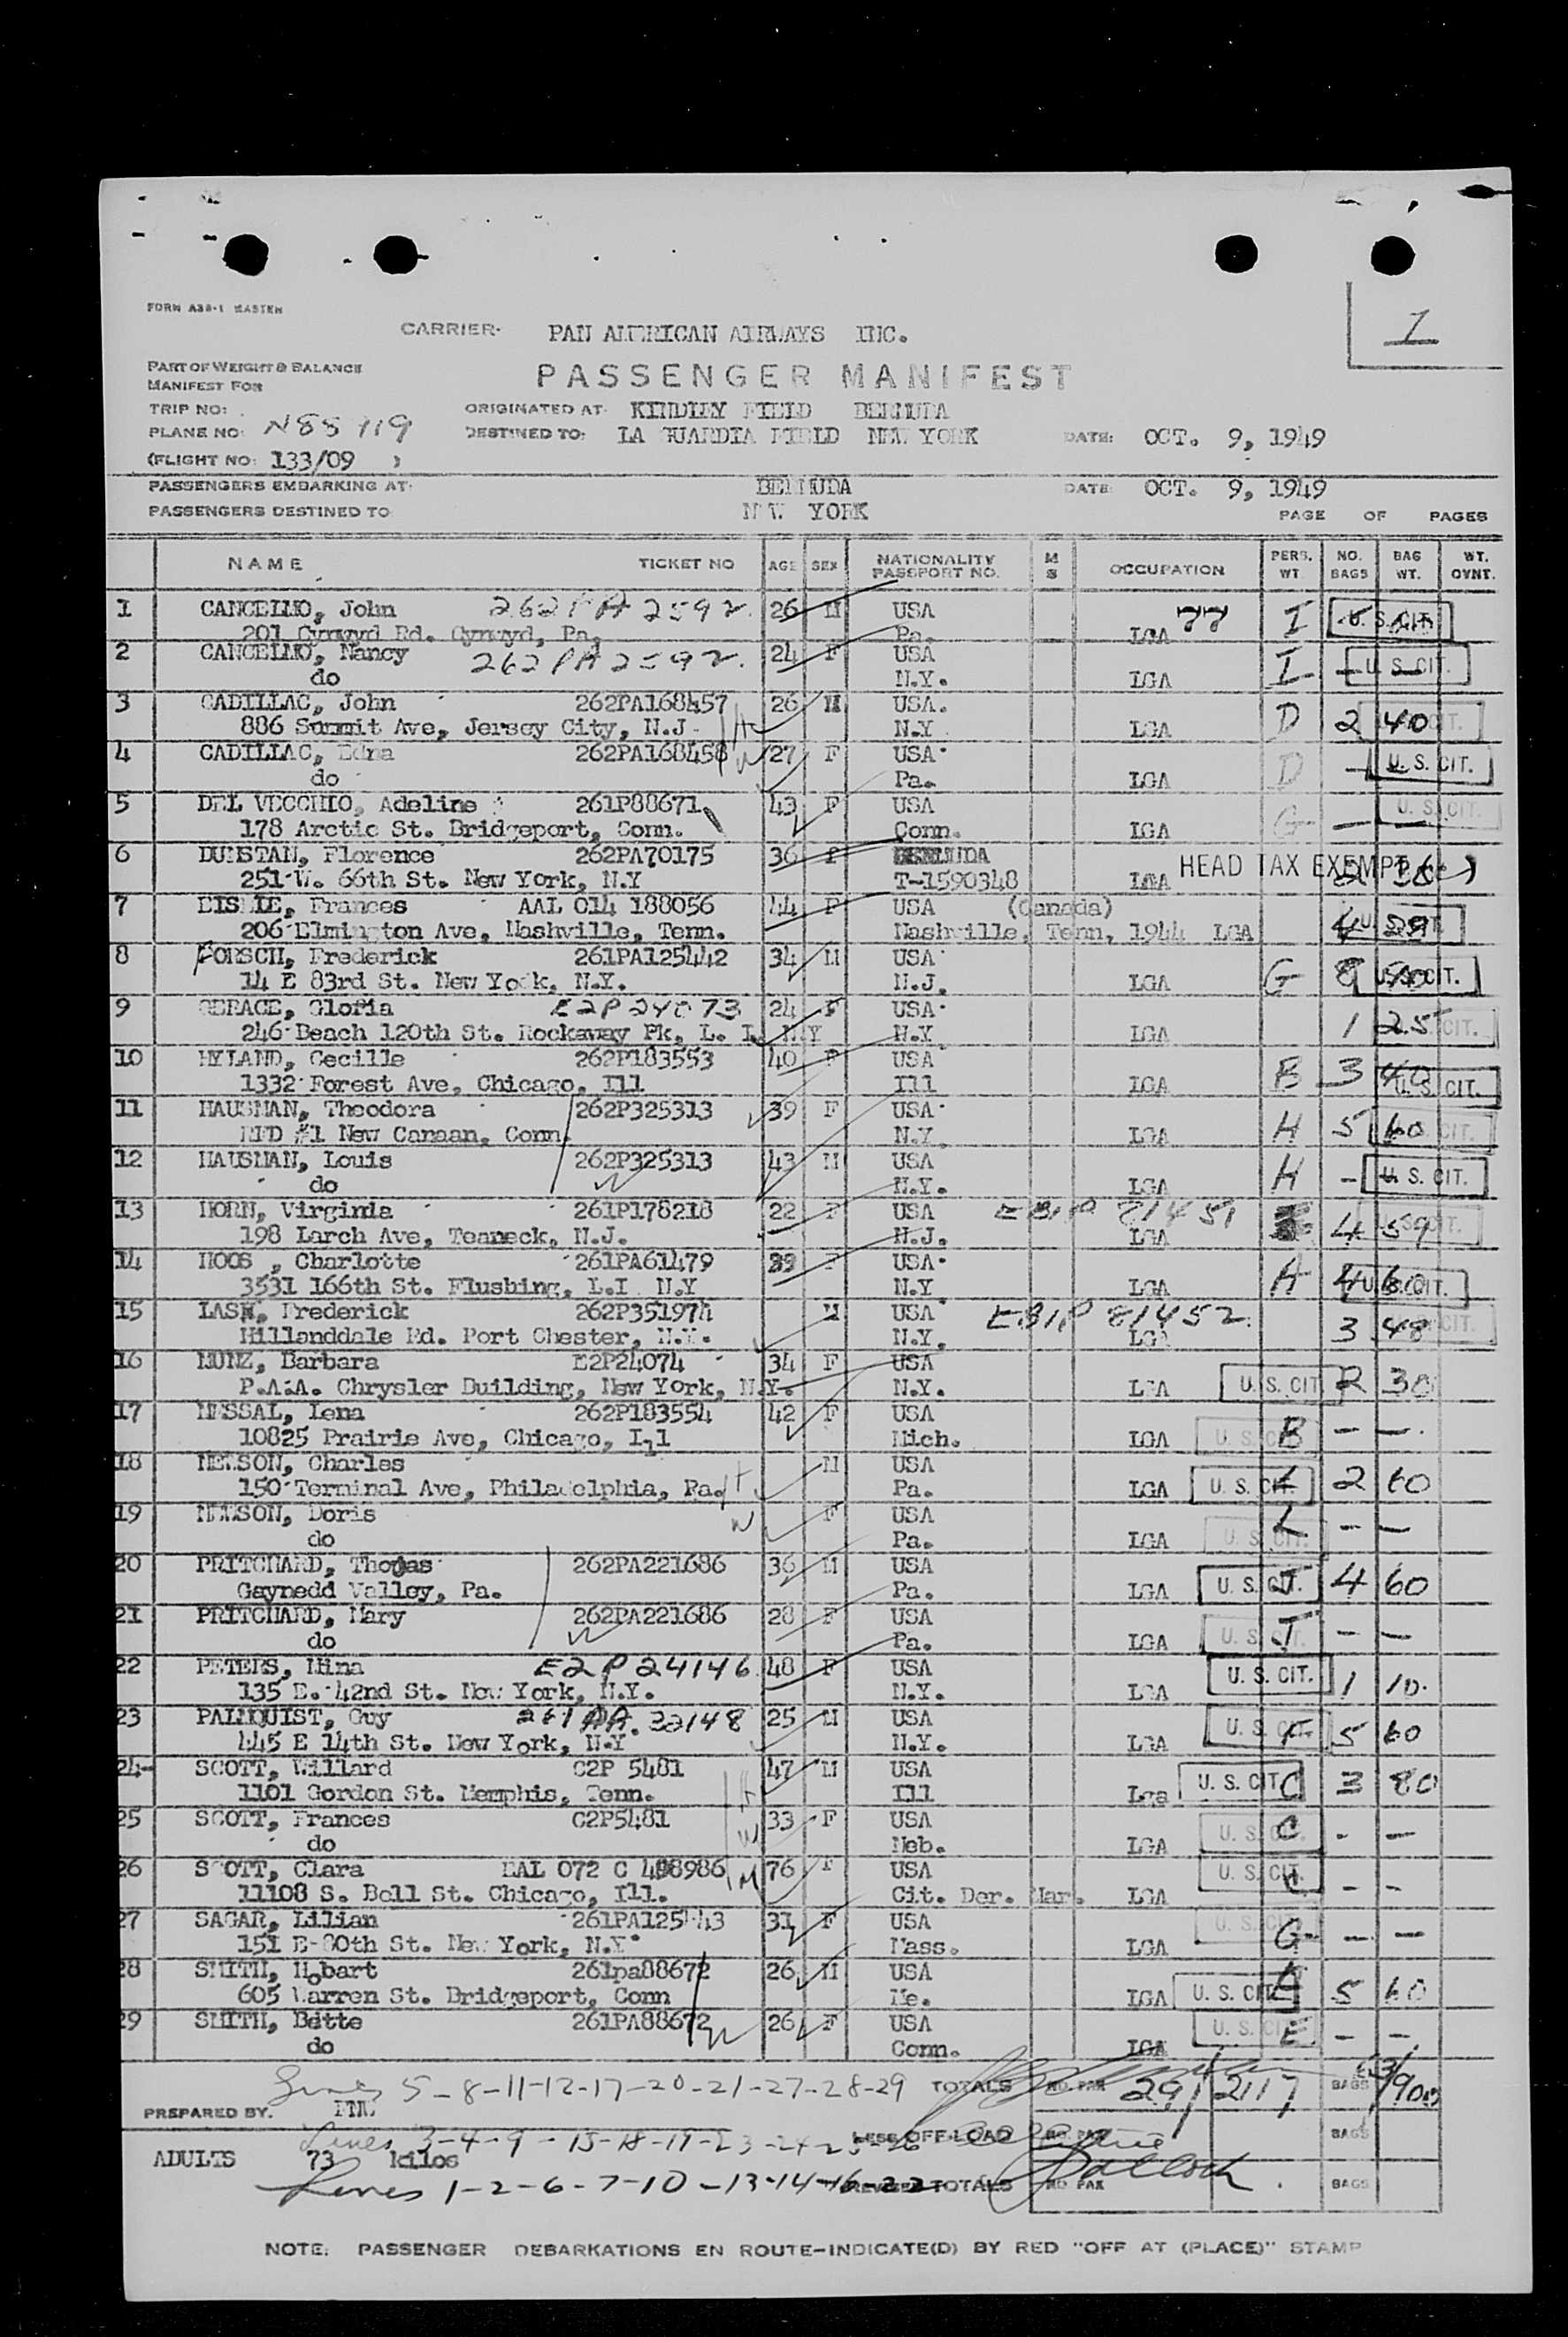 FORM A38-1 MASTER
1
CARRIER- PAN AMERICAN AIRWAYS INC.
PART OF WEIGHT & BALANCE
MANIFEST FOR
PASSENGER MANIFEST
TRIP NO:
ORIGINATED AT- KINDLEY FIELD BERMUDA
PLANE NO:
DESTINED TO: LA GUARDIA FIELD NEW YORK DATE: OCT. 9, 1949
(FLIGHT NO: 133/09 )
PASSENGERS EMBARKING AT- BERMUDA DATE: OCT. 9, 1949
PASSENGERS DESTINED TO NEW YORK
PAGE OF PAGES
NAME TICKET NO AGE SEX NATIONALITY PASSPORT NO. M S OCCUPATION PERS. WT. NO. BAGS BAG WT. WT. OVNT.
1 John 262PA2592 26 M USA 77 I U. S. CIT.
201 Cynwyd Rd. Cynwyd, Pa. Pa. LGA
2 Nancy 262PA2592. 24 F USA I U. S. CIT.
do N.Y. LGA
3 CADILLAC, John 262PA168457 26 M USA. D 2 40
886 Summit Ave, Jersey City, N.J. H N.Y LGA
4 CADILLAC, Edna 262PA168458 W 27 F USA D - U. S. CIT.
do Pa. LGA
5 DEL VECCHIO, Adeline 261P88671 43 F USA G - - U. S. CIT.
178 Arctic St. Bridgeport, Conn. Conn. LGA
6 DUNSTAN, Florence 262PA70175 36 F BERMUDA HEAD TAX EXEMPT
251 W. 66th St. New York, N.Y T-1590348 LGA
7 Frances AAL 014 188056 44 F USA (Canada)
206 Elmington Ave, Nashville, Tenn. Nashville, Tenn, 1944 LGA
8 FORSCH, Frederick 261PA125442 34 M USA G 8 U. S. CIT.
14 E 83rd St. New York, N.Y. N.J. LGA
9 Gloria E2P24073 24 F USA 1 25
246 Beach 120th St. Rockaway Pk, L. I. N.Y N.Y LGA
10 HYLAND, Cecille 262P183553 40 F USA B 3 40 U. S. CIT.
1332 Forest Ave, Chicago, Ill Ill LGA
11 HAUSMAN, Theodora 262P325313 39 F USA H 5 60
RFD #1 New Canaan, Conn. N.Y. LGA
12 HAUSMAN, Louis 262P325313 43 M USA H - U. S. CIT.
do N.Y. LGA
13 HORN, Virginia 261P178218 22 F USA E81P 81451 4 59
198 Larch Ave, Teaneck, N.J. N.J. LGA
14 HOOS , Charlotte 261PA61479 39 F USA A 4 60 U. S. CIT.
3531 166th St. Flushing, L.I N.Y N.Y LGA
15 LASK, Frederick 262P351974 M USA E81P 81452 3 48
Hillanddale Rd. Port Chester, N.Y. N.Y. LGA
16 MUNZ, Barbara E2P24074 34 F USA U. S. CIT. 2 30
P.A.A. Chrysler Building, New York, N.Y. N.Y. LGA
17 MESSAL, Lena 262P183554 42 F USA B - -
10825 Prairie Ave, Chicago, Ill Mich. LGA
18 NELSON, Charles M USA U. S. CIT. L 2 60
150 Terminal Ave, Philadelphia, Pa. H Pa. LGA
19 NELSON, Doris W F USA L - -
do Pa. LGA
20 PRITCHARD, Thomas 262PA221686 36 M USA U. S. CIT. J 4 60
Gwynedd Valley, Pa. Pa. LGA
21 PRITCHARD, Mary 262PA221686 28 F USA J - -
do W Pa. LGA
22 PETERS, Mina E2P24146 48 F USA U. S. CIT. 1 10.
135 E. 42nd St. New York, N.Y. N.Y. LGA
23 PALMQUIST, Guy 261PA.32148 25 M USA U. S. CIT. 5 60
445 E 14th St. New York, N.Y N.Y. LGA
24 SCOTT, Willard C2P 5481 47 M USA U. S. CIT. C 3 80
1101 Gordon St. Memphis, Tenn. H Ill Lga
25 SCOTT, Frances C2P5481 33 F USA C - -
do W Neb. LGA
26 SCOTT, Clara EAL 072 C 408986 M 76 F USA U. S. CIT. C - -
11108 S. Bell St. Chicago, Ill. Cit. Der. Mar. LGA
27 SAGAR, Lilian 261PA125443 31 F USA G - -
151 E-80th St. New York, N.Y. Mass. LGA
28 SMITH, Hobart 261pa88672 26 M USA U. S. CIT. E 5 60
605 Warren St. Bridgeport, Conn Me. LGA
29 SMITH, Bette 261PA88672 26 F USA U. S. CIT. E - -
do W Conn. LGA
Lines 5-8-11-12-17-20-21-27-28-29 TOTALS NO. PAX 29 2117 BAGS
PREPARED BY.
Lines 3-4-9-15-18-19-23-24-25-26 LESS OFF-LOAD NO. PAX BAGS
ADULTS 73 kilos
Lines 1-2-6-7-10-13-14-16-22 REVISED TOTALS NO PAX BAGS
NOTE: PASSENGER DEBARKATIONS EN ROUTE-INDICATE(D) BY RED "OFF AT (PLACE)" STAMP